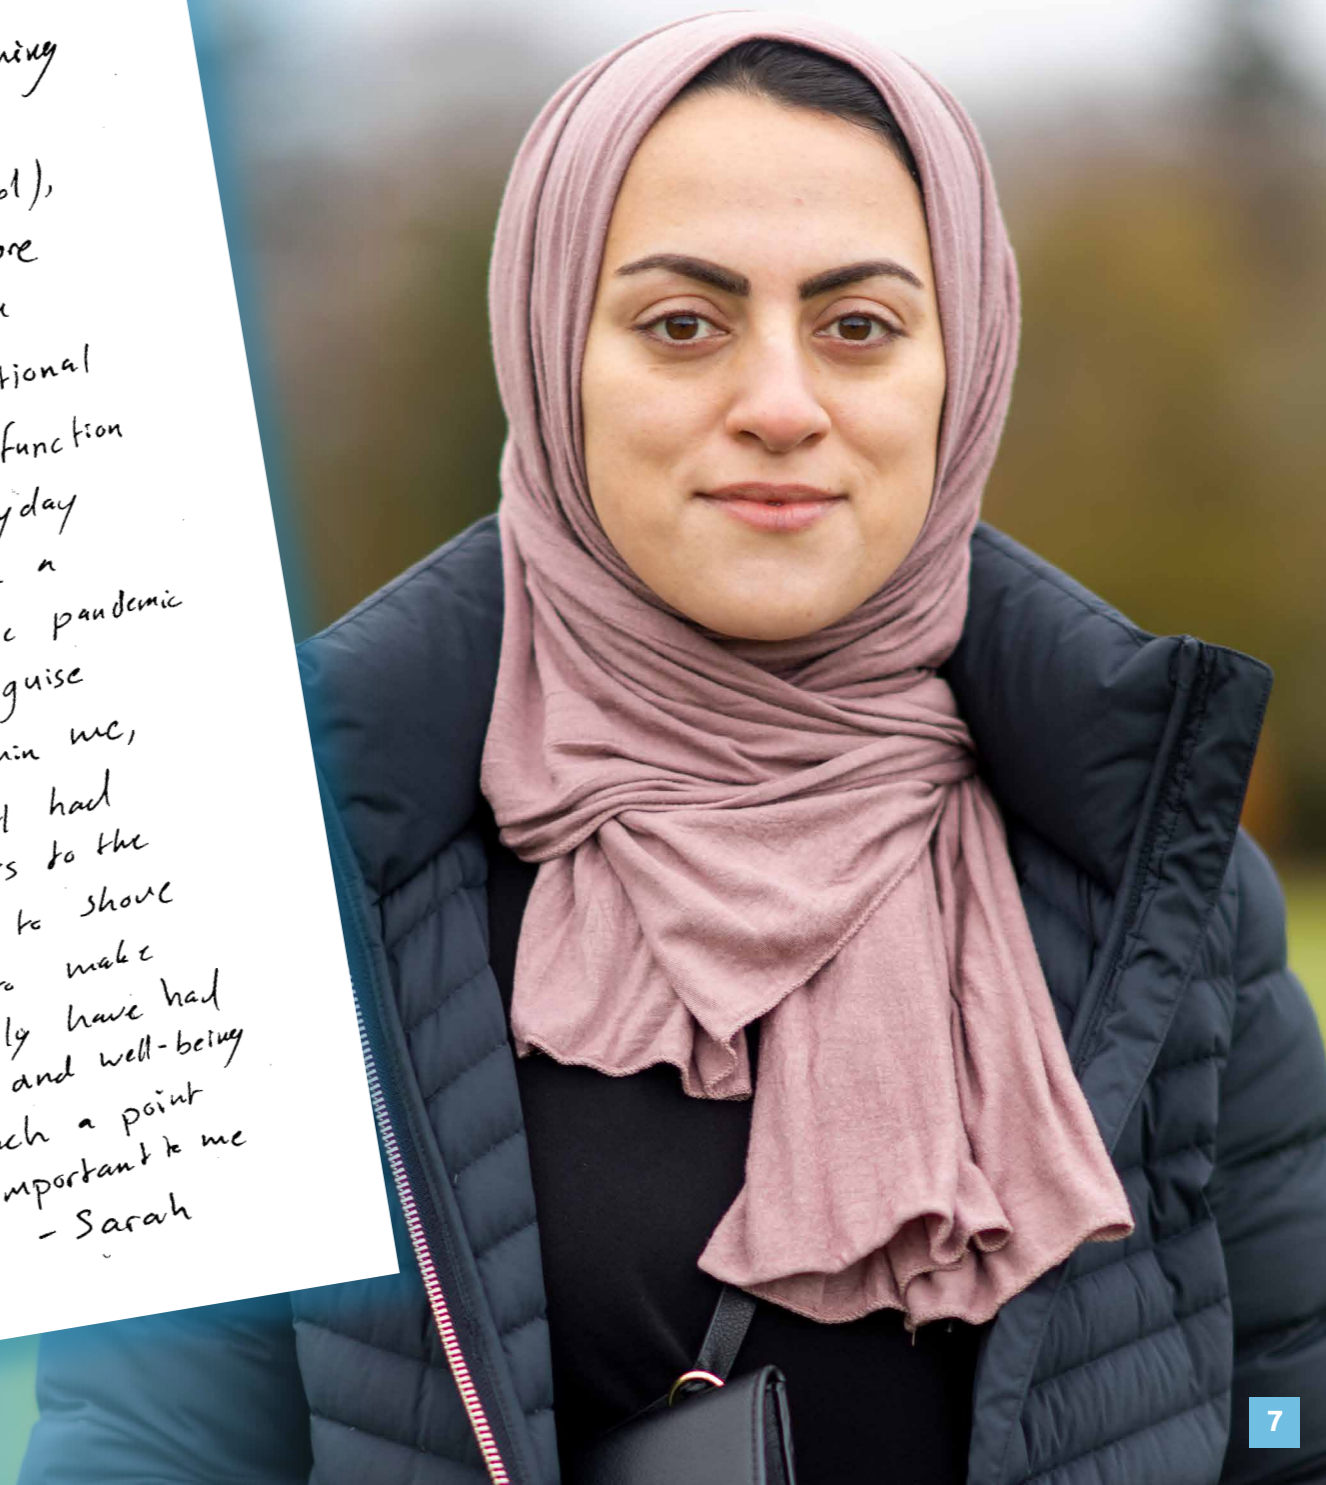 ning
ol),
ore
u
tional
function
yday
a
e pandemic
guise
hin me,
I had
rs to the
to shove
o make
ly have had
and well-being
ach a point
mportant to me
- Sarah
7